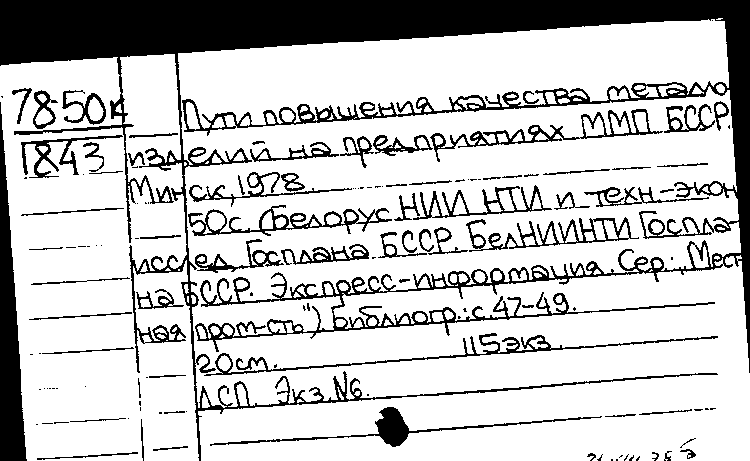 78-50к Пути повышения качества металло
1843 изделий на предприятиях ММП БССР.
Минск, 1978.
50с. (Белорус. НИИ НТИ и техн.-экон
исслед. Госплана БССР. БелНИИНТИ Госпла-
на БССР. Экспресс-информация. Сер.: „Мест-
ная пром-сть"). Библиогр.: с. 47-49.
20см. 115экз.
ДСП. Экз. №6.